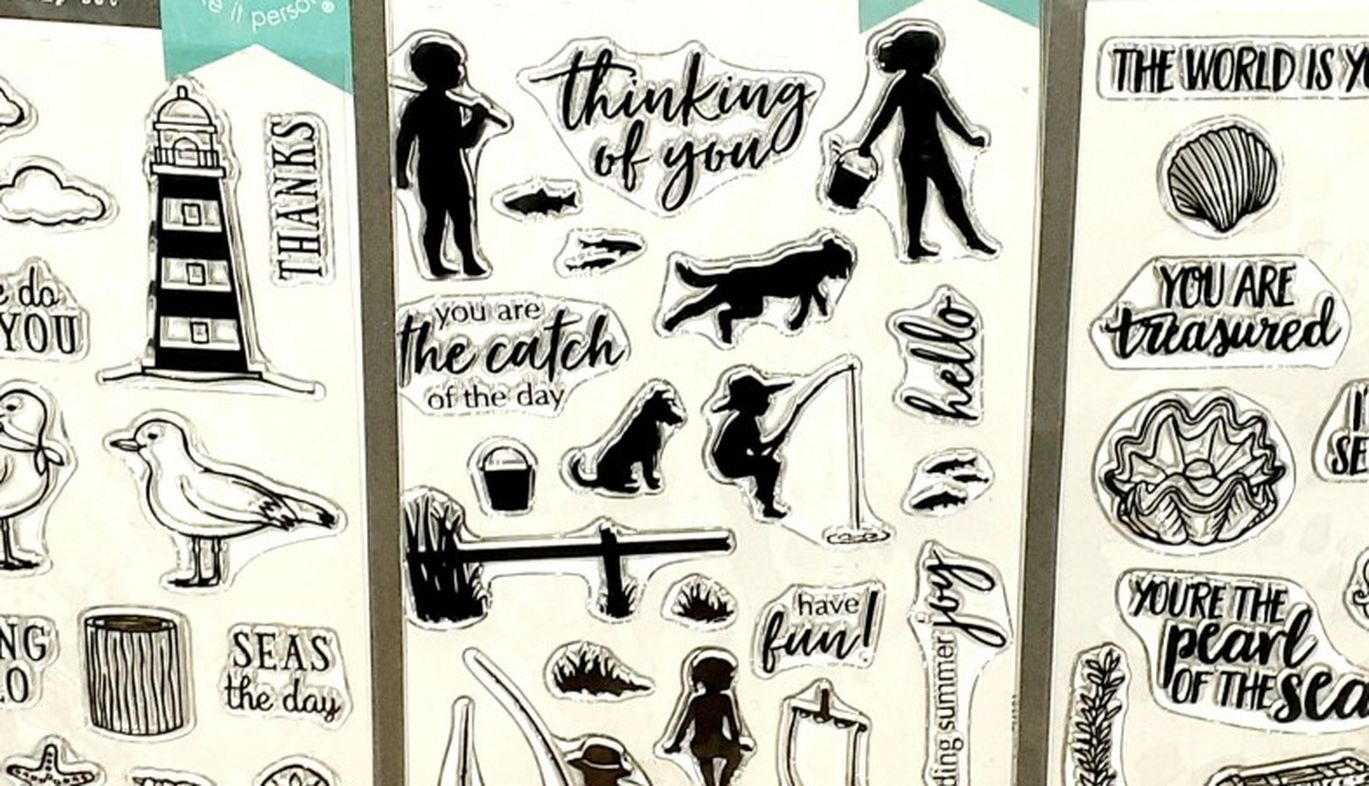 it
THANKS
do
YOU
SEAS
the day
thinking
of you
you are
the catch
of the day
hello
have
fun!
summer joy
THE WORLD IS
YOU ARE
treasured
YOU'RE THE
pearl
OF THE sea